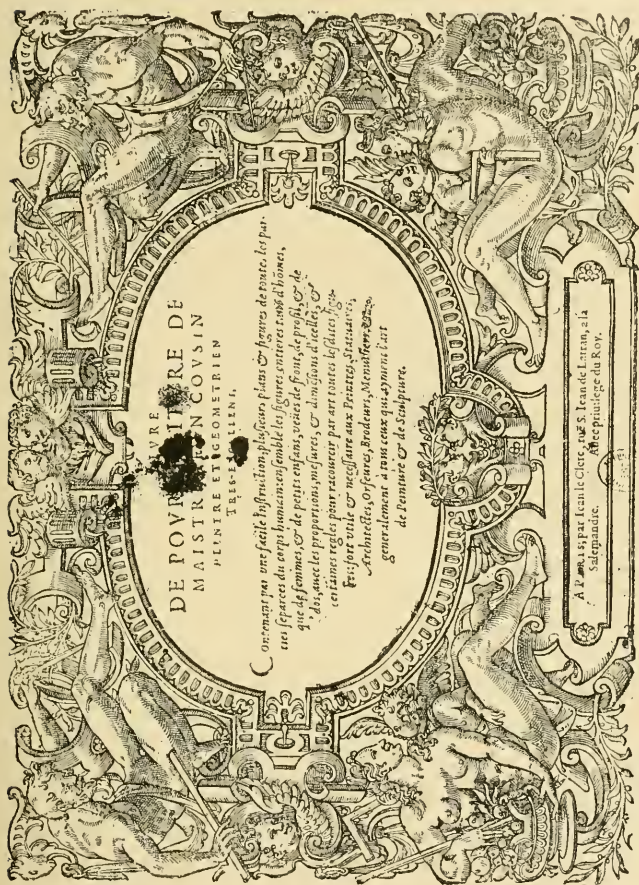 VRE
DE POVR TRE DE
MAISTR N COVSIN
PEINTRE ET GEOMETRIEN
TRES-EX LENS,
Contenant par vne facile Instruction, plusieurs plans & figures de toutes les par-
ties separees du corps humain: ensemble les figures entieres tant d'hōmes,
que de femmes, & de petits enfans, veües de front, de profil, & de
dos, auec les proportions, mesures, & dimensions d'icelles, &
certaines regles pour racourcir par art toutes lesdites
fort vtile & necessaire aux Peintres, Statuaires,
Architectes, Orfeures, Brodeurs, Menusiers, &
generalement à tous ceux qui ayment l'art
de Peinture & de Sculpture.
A PARIS, par Iean le Clerc, ruë S. Iean de Latran, à la
Salemandre. Auec priuilege du Roy.